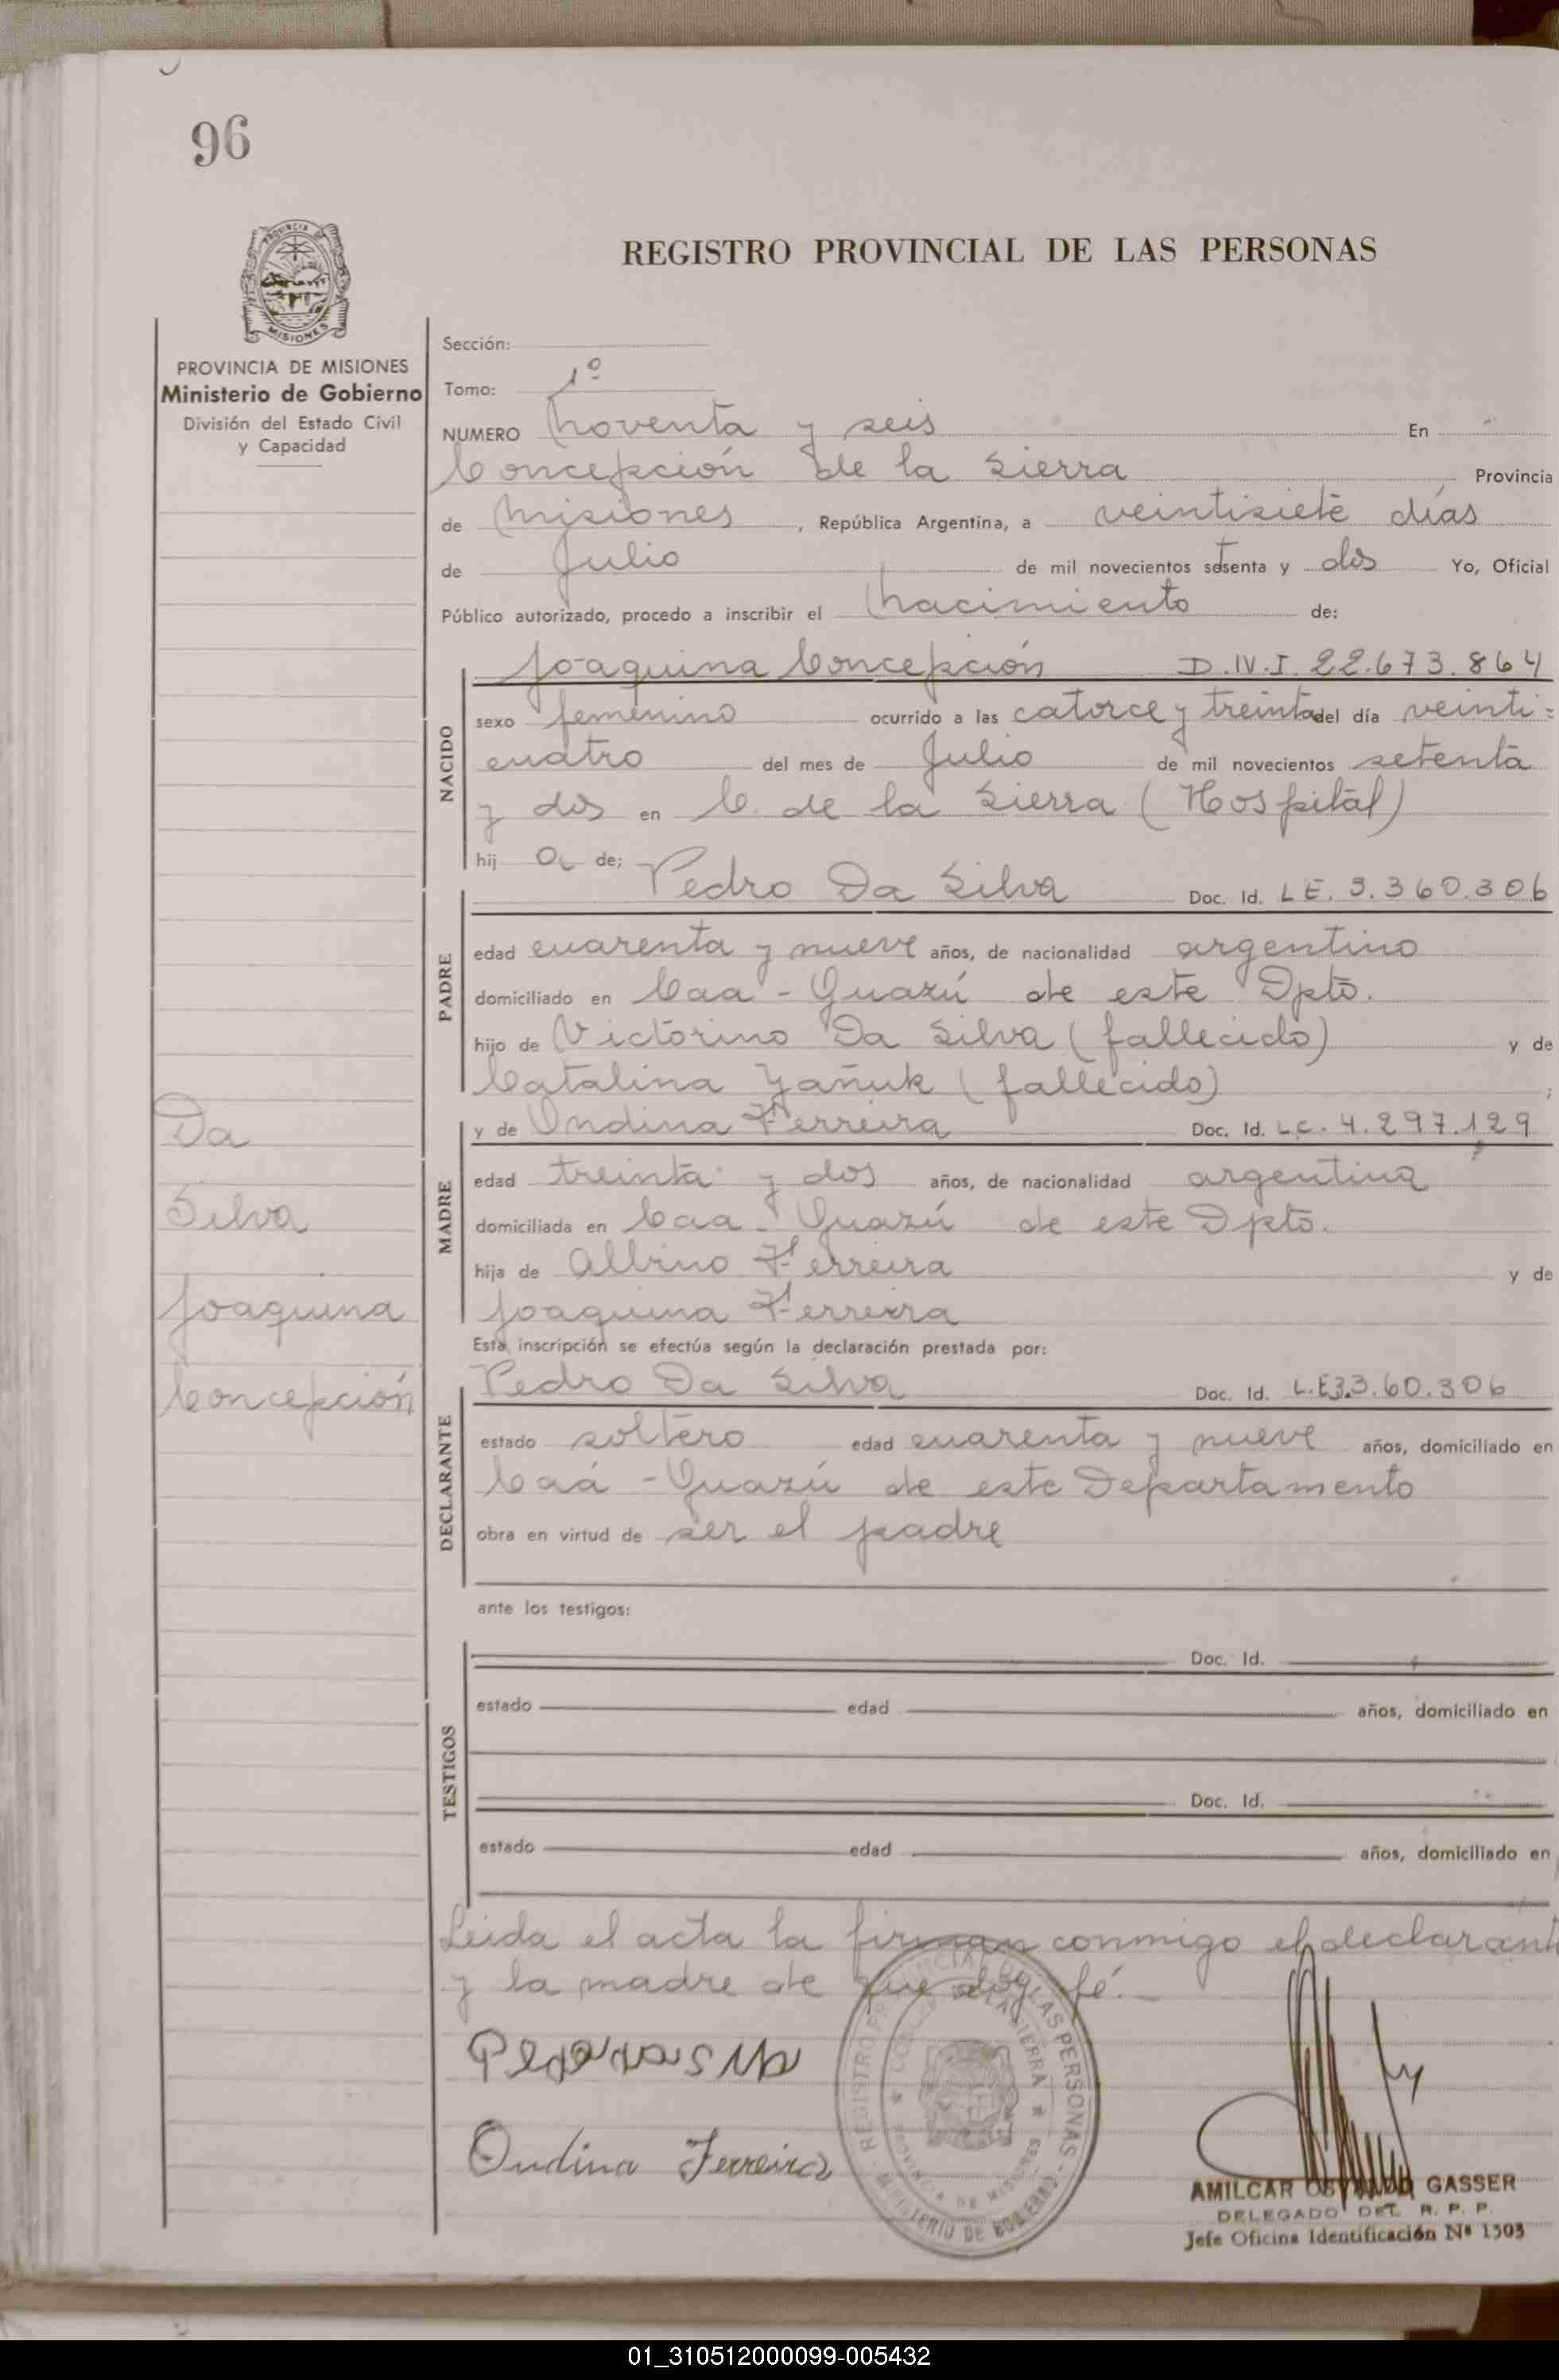 96
PROVINCIA DE MISIONES
Ministerio de Gobierno
División del Estado Civil
y Capacidad
REGISTRO PROVINCIAL DE LAS PERSONAS
Sección:
Tomo: 1º
NUMERO Noventa y seis En
Concepción de la Sierra Provincia
de Misiones, República Argentina, a veintisiete días
de Julio de mil novecientos setenta y dos Yo, Oficial
Público autorizado, procedo a inscribir el Nacimiento de:
NACIDO
Joaquina Concepción D.N.I 22.673.864
sexo femenino ocurrido a las catorce y treinta del día veinti=
cuatro del mes de Julio de mil novecientos setenta
y dos en C. de la Sierra (Hospital)
hij a de;
PADRE
Pedro Da Silva Doc. Id. LE. 3.360.306
edad cuarenta y nueve años, de nacionalidad argentino
domiciliado en Caa-Guazú de este Dpto.
hijo de Victorino Da Silva (fallecido) y de
Catalina Yañuk (fallecido) ;
MADRE
y de Ondina Ferreira Doc. Id. L.C. 4.297.129
edad treinta y dos años, de nacionalidad argentina
domiciliada en Caa-Guazú de este Dpto.
hija de Albino Ferreira y de
Joaquina Ferreira
Da
Silva
Joaquina
Concepción
Esta inscripción se efectúa según la declaración prestada por:
DECLARANTE
Pedro Da Silva Doc. Id. L.E3.3.60.306
estado soltero edad cuarenta y nueve años, domiciliado en
Caá-Guazú de este Departamento
obra en virtud de ser el padre
ante los testigos:
TESTIGOS
Doc. Id.
estado edad años, domiciliado en
Doc. Id.
estado edad años, domiciliado en
Leida el acta la firman conmigo el declarant
y la madre de que doy fé.
Ondina Ferreira
REGISTRO PROVINCIAL DE LAS PERSONAS
MINISTERIO DE GOBIERNO
PROVINCIA DE MISIONES
AMILCAR OSVALDO GASSER
DELEGADO DEL R. P. P.
Jefe Oficina Identificación Nº 1503
01_310512000099-005432